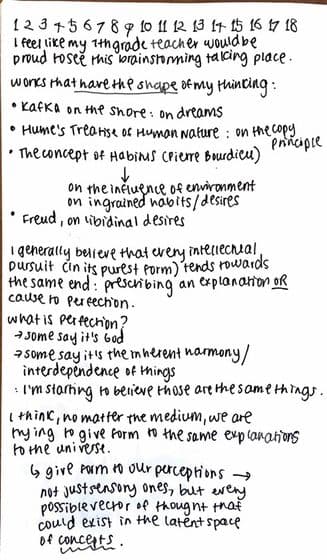 1 2 3 4 5 6 7 8 9 10 11 12 13 14 15 16 17 18
I feel like my 7th grade teacher would be
proud to see this brainstorming taking place.
works that have the shape of my thinking:
• Kafka on the Shore: on dreams
• Hume's Treatise of Human Nature: on the copy
principle
• The concept of Habitus (Pierre Bourdieu)
↓
on the influence of environment
on ingrained habits/desires
• Freud, on libidinal desires
I generally believe that every intellectual
pursuit (in its purest form) tends towards
the same end: prescribing an explanation OR
cause to perfection.
what is perfection?
→ some say it's God
→ some say it's the inherent harmony/
interdependence of things
: I'm starting to believe those are the same things.
I think, no matter the medium, we are
trying to give form to the same explanations
to the universe.
↳ give form to our perceptions →
not just sensory ones, but every
possible vector of thought that
could exist in the latent space
of concepts.